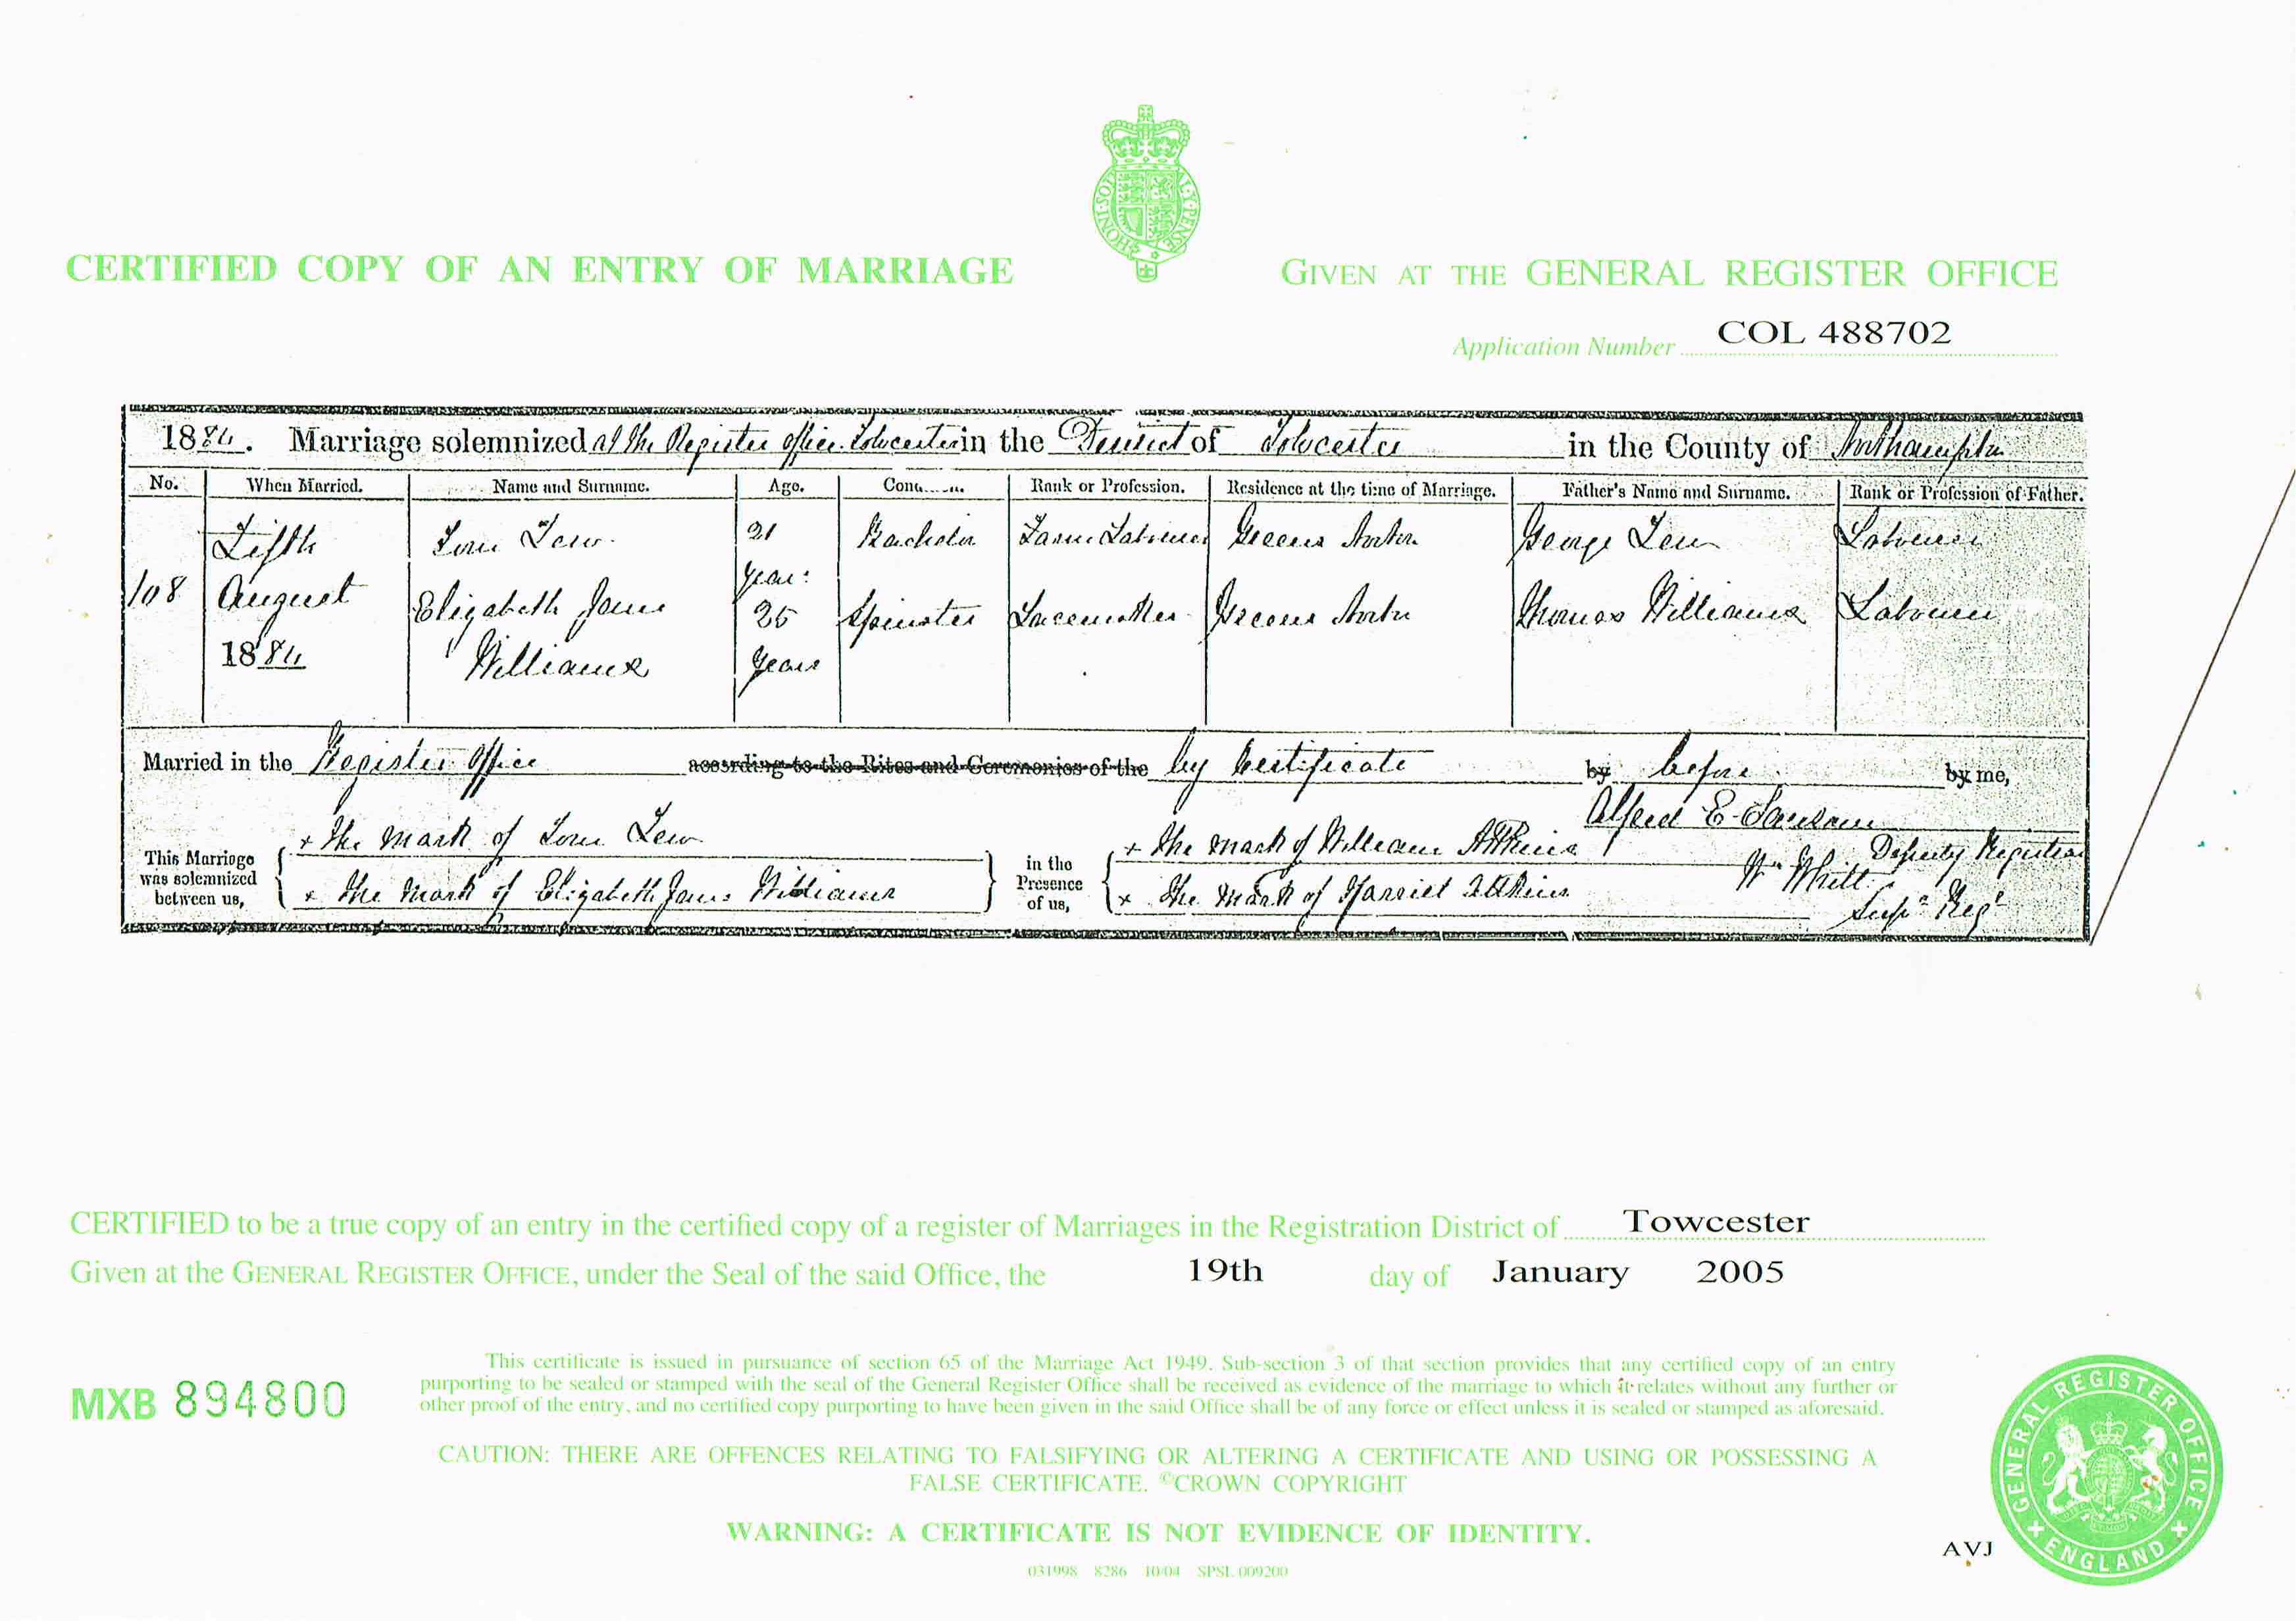 HONI·SOIT QUI MAL·Y·PENSE
CERTIFIED COPY OF AN ENTRY OF MARRIAGE
GIVEN AT THE GENERAL REGISTER OFFICE
Application Number COL 488702
1884. Marriage solemnized at the Register office Towcester in the District of Towcester in the County of Northampton
No. When Married. Name and Surname. Age. Rank or Profession. Residence at the time of Marriage. Father's Name and Surname. Rank or Profession of Father.
108 Fifth August 1884
Tom Tew 21 years Bachelor Farm Labourer Greens Norton George Tew Labourer
Elizabeth Jane Williams 25 years Spinster Lacemaker Greens Norton Thomas Williams Labourer
Married in the Register Office according to the Rites and Ceremonies of the by Certificate by before by me,
This Marriage was solemnized between us,
x The mark of Tom Tew
x The mark of Elizabeth Jane Williams
in the Presence of us,
x The mark of William Atkins
x The mark of Harriet Atkins
Alfred E. Deputy Registrar
Wm Whitt Supt Regr
CERTIFIED to be a true copy of an entry in the certified copy of a register of Marriages in the Registration District of Towcester
Given at the GENERAL REGISTER OFFICE, under the Seal of the said Office, the 19th day of January 2005
MXB 894800
This certificate is issued in pursuance of section 65 of the Marriage Act 1949. Sub-section 3 of that section provides that any certified copy of an entry
purporting to be sealed or stamped with the seal of the General Register Office shall be received as evidence of the marriage to which it relates without any further or
other proof of the entry, and no certified copy purporting to have been given in the said Office shall be of any force or effect unless it is sealed or stamped as aforesaid.
CAUTION: THERE ARE OFFENCES RELATING TO FALSIFYING OR ALTERING A CERTIFICATE AND USING OR POSSESSING A
FALSE CERTIFICATE. ©CROWN COPYRIGHT
WARNING: A CERTIFICATE IS NOT EVIDENCE OF IDENTITY.
031998 8286 10/04 SPSL 009200
AVJ
GENERAL REGISTER OFFICE
ENGLAND